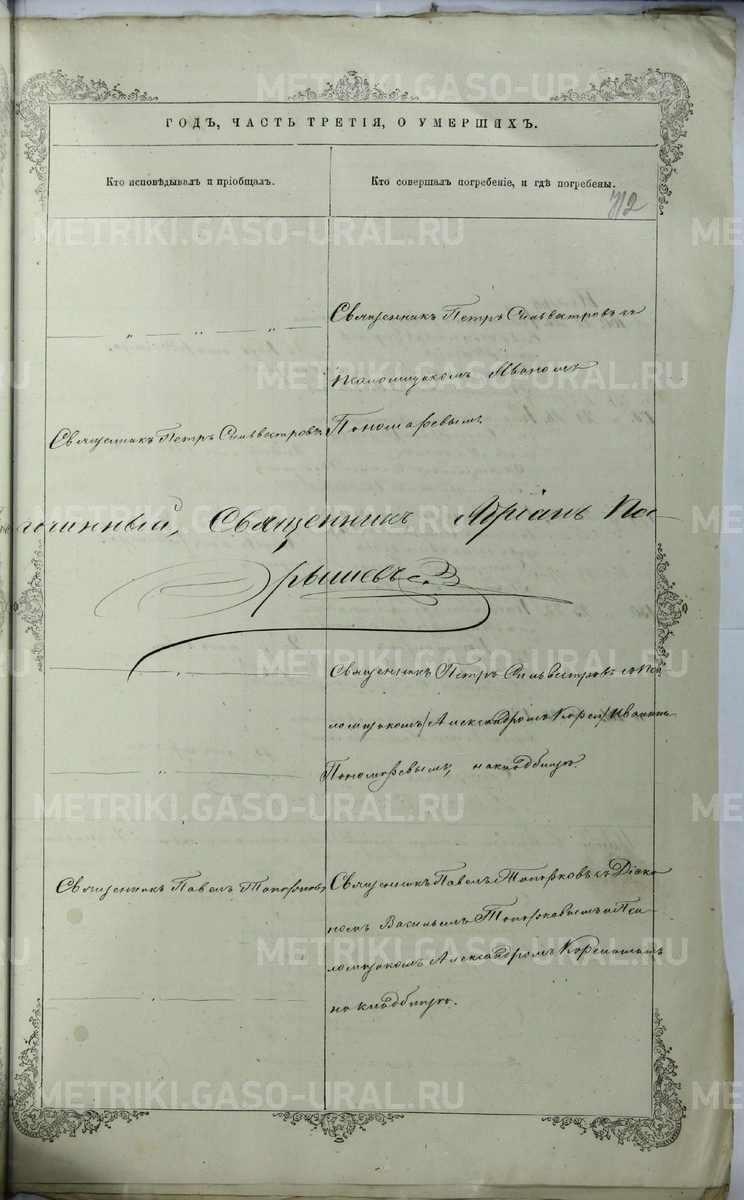 ГОДЪ, ЧАСТЬ ТРЕТІЯ, О УМЕРШИХЪ.
Кто исповѣдывалъ и пріобщалъ.
Кто совершалъ погребеніе, и гдѣ погребены.
712
Священникъ Петръ Сильвестровъ съ
псаломщикомъ Иваномъ
Священникъ Петръ Сильвестровъ.
Пономаревымъ.
чинный, Священникъ Адріанъ
Священникъ Петръ Сильвестровъ съ Пса
ломщикомъ Александромъ Иваномъ
Пономаревымъ, на кладбищѣ.
Священникъ Павелъ Топорковъ
Священникъ Павелъ Топорковъ съ Діако
номъ Васильемъ Топорковымъ и Пса
ломщикомъ Александромъ
на кладбищѣ.
METRIKI.GASO-URAL.RU